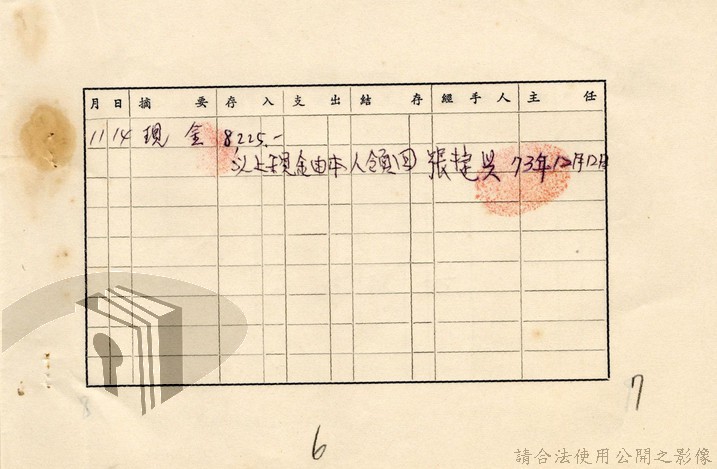 月 日 摘 要 存 入 支 出 結 存 經 手 人 主 任
11 14 現 金 8,225.-
以上現金由本人領回 張 73年12月12日
8
7
6
請合法使用公開之影像